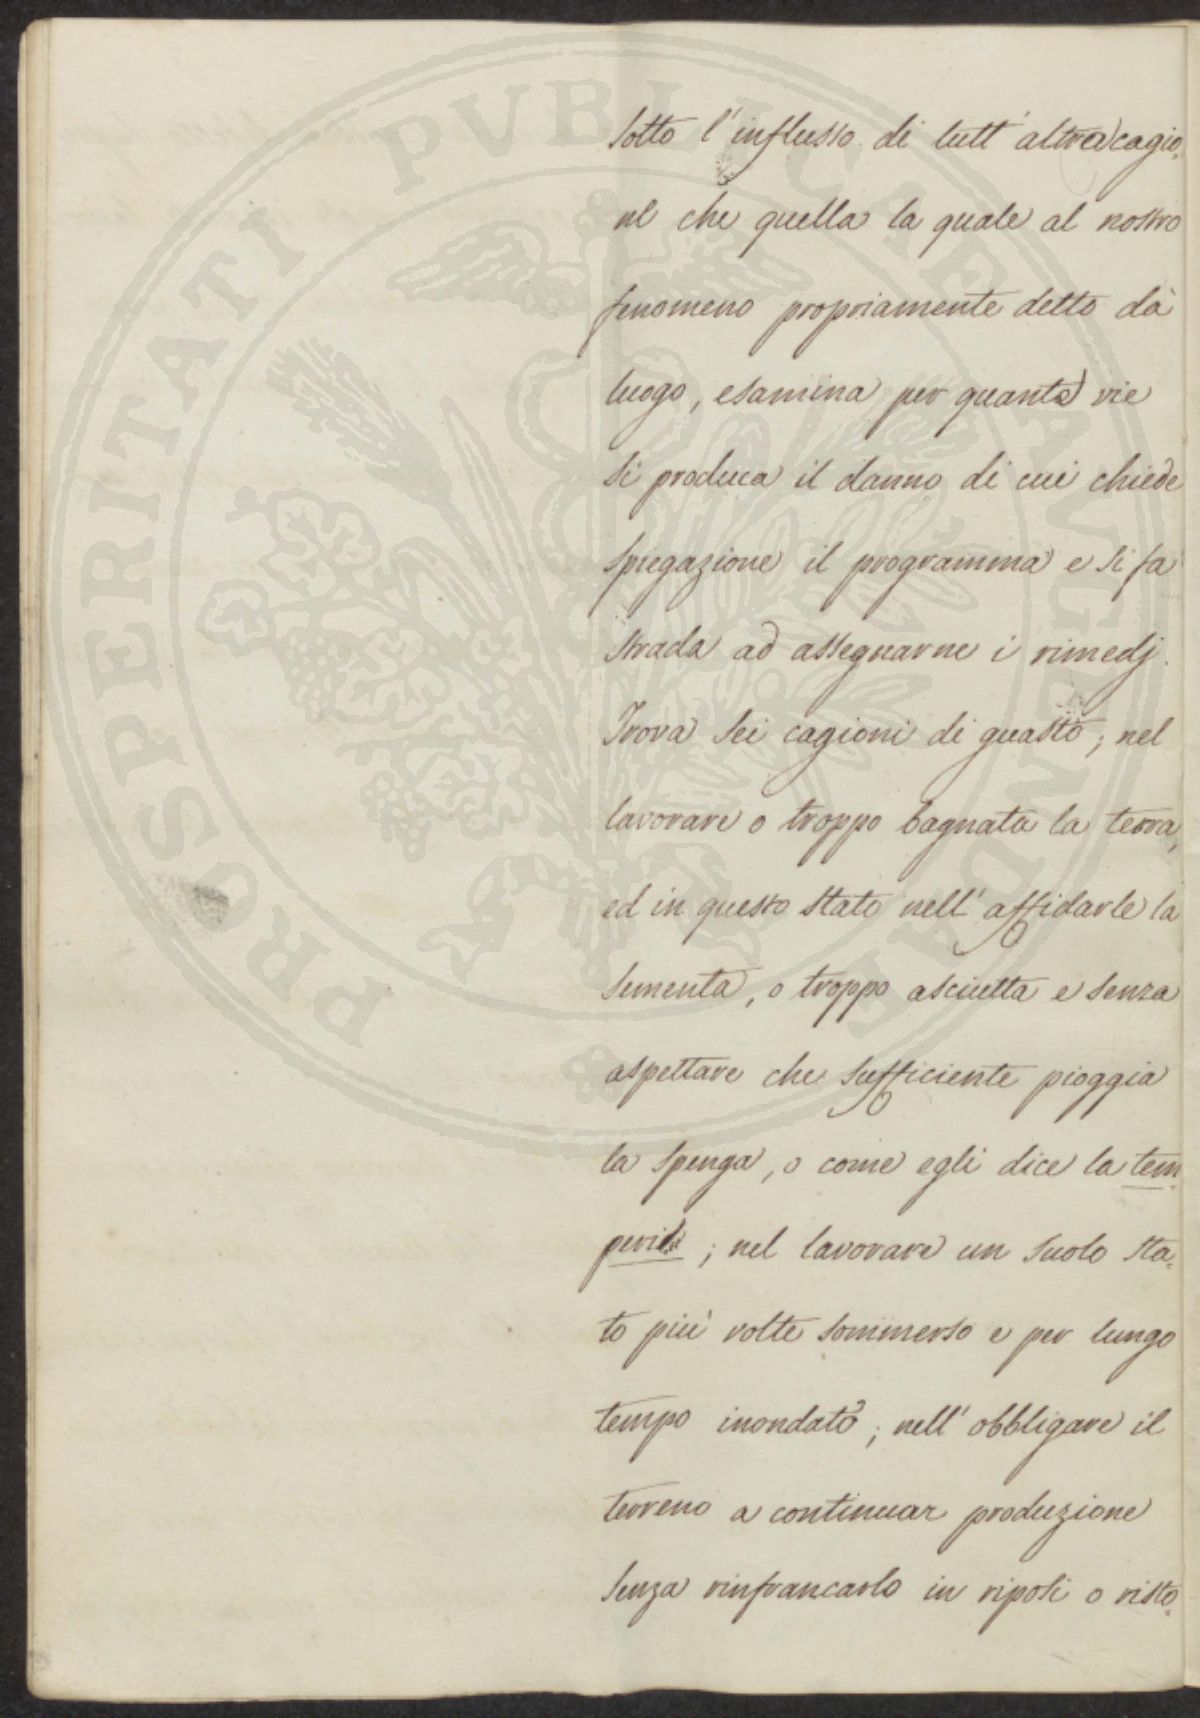 sotto l'influsso di tutt'altra cagio-
ne che quella la quale al nostro
fenomeno propriamente detto dà
luogo, esamina per quante vie
si produca il danno di cui chiede
spiegazione il programma e si fa
strada ad assegnarne i rimedj.
Trova sei cagioni di guasto; nel
lavorare o troppo bagnata la terra,
ed in questo stato nell'affidarle la
sementa, o troppo asciutta e senza
aspettare che sufficiente pioggia
la spenga, o come egli dice la tem-
peri; nel lavorare un suolo sta-
to più volte sommerso e per lungo
tempo inondato; nell'obbligare il
terreno a continuar produzione
senza rinfrancarlo in riposi o risto-
PROSPERITATI PVBLICAE AVGENDAE